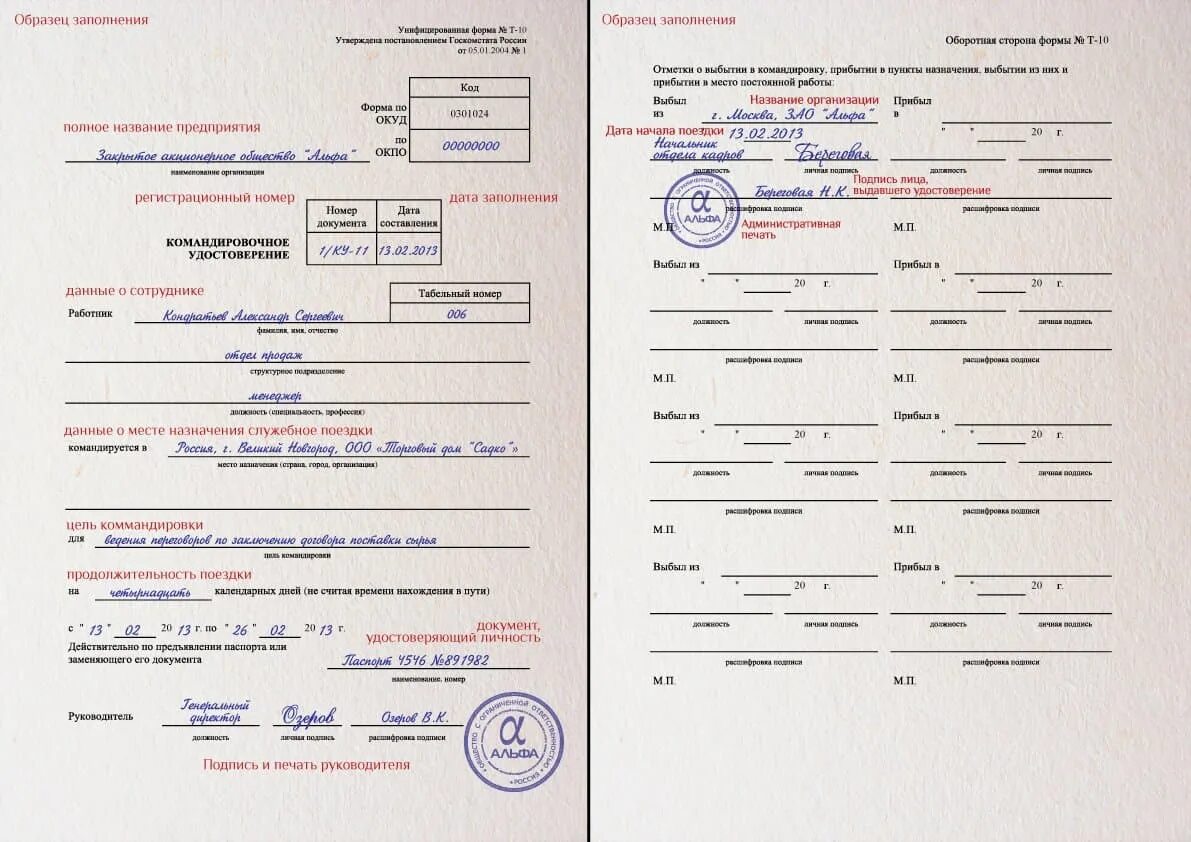 Образец заполнения
Унифицированная форма № Т-10
Утверждена постановлением Госкомстата России
от 05.01.2004 № 1
Код
Форма по ОКУД
0301024
полное название предприятия
по ОКПО
00000000
Закрытое акционерное общество "Альфа"
наименование организации
регистрационный номер
дата заполнения
Номер документа
Дата составления
КОМАНДИРОВОЧНОЕ УДОСТОВЕРЕНИЕ
1/КУ-11
13.02.2013
данные о сотруднике
Табельный номер
Работник
Кондратьев Александр Сергеевич
006
фамилия, имя, отчество
отдел продаж
структурное подразделение
менеджер
должность (специальность, профессия)
данные о месте назначения служебное поездки
командируется в
Россия, г. Великий Новгород, ООО «Торговый дом "Садко"»
место назначения (страна, город, организация)
цель коммандировки
для
ведения переговоров по заключению договора поставки сырья
цель командировки
продолжительность поездки
на
четырнадцать
календарных дней (не считая времени нахождения в пути)
с "13" 02 2013 г. по "26" 02 2013 г.
документ, удостоверяющий личность
Действительно по предъявлении паспорта или
заменяющего его документа
Паспорт 4546 №891982
наименование, номер
Руководитель
Генеральный директор
Озеров
Озеров В.К.
должность
личная подпись
расшифровка подписи
ОБЩЕСТВО С ОГРАНИЧЕННОЙ ОТВЕТСТВЕННОСТЬЮ
α
АЛЬФА
РОССИЯ
Подпись и печать руководителя
Образец заполнения
Оборотная сторона формы № Т-10
Отметки о выбытии в командировку, прибытии в пункты назначения, выбытии из них и
прибытии в место постоянной работы:
Выбыл из
Название организации
г. Москва, ЗАО "Альфа"
Прибыл в
Дата начала поездки
13.02.2013
" " 20 г.
Начальник отдела кадров
Береговая
должность
личная подпись
должность
личная подпись
Подпись лица, выдавшего удостоверение
Береговая Н.К.
расшифровка подписи
расшифровка подписи
ОГРАНИЧЕННОЙ ОТВЕТСТВЕННОСТЬЮ
α
АЛЬФА
РОССИЯ
Административная печать
М.П.
М.П.
Выбыл из
Прибыл в
" " 20 г.
" " 20 г.
должность
личная подпись
должность
личная подпись
расшифровка подписи
расшифровка подписи
М.П.
М.П.
Выбыл из
Прибыл в
" " 20 г.
" " 20 г.
должность
личная подпись
должность
личная подпись
расшифровка подписи
расшифровка подписи
М.П.
М.П.
Выбыл из
Прибыл в
" " 20 г.
" " 20 г.
должность
личная подпись
должность
личная подпись
расшифровка подписи
расшифровка подписи
М.П.
М.П.